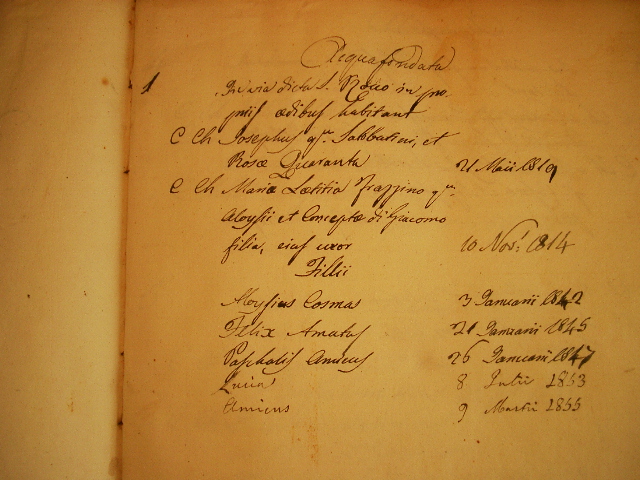 Acquafondata
1 In via dicta S. Rocco in pro-
priis ædibus habitant
C Ch Josephus qm Sabbatini, et
Rosæ Quaranta 21 Maii 1810
C Ch Maria Lætitia Frazzino qm
Aloysii et Conceptæ di Giacomo
filia, ejus uxor 10 Nos: 1814
Fillii
Aloysius Cosmas 3 Januarii 1842
Felix Amatus 21 Januarii 1845
Paschalis Amicus 26 Januarii 1847
Lucia 8 Julii 1853
Amicus 9 Martii 1855